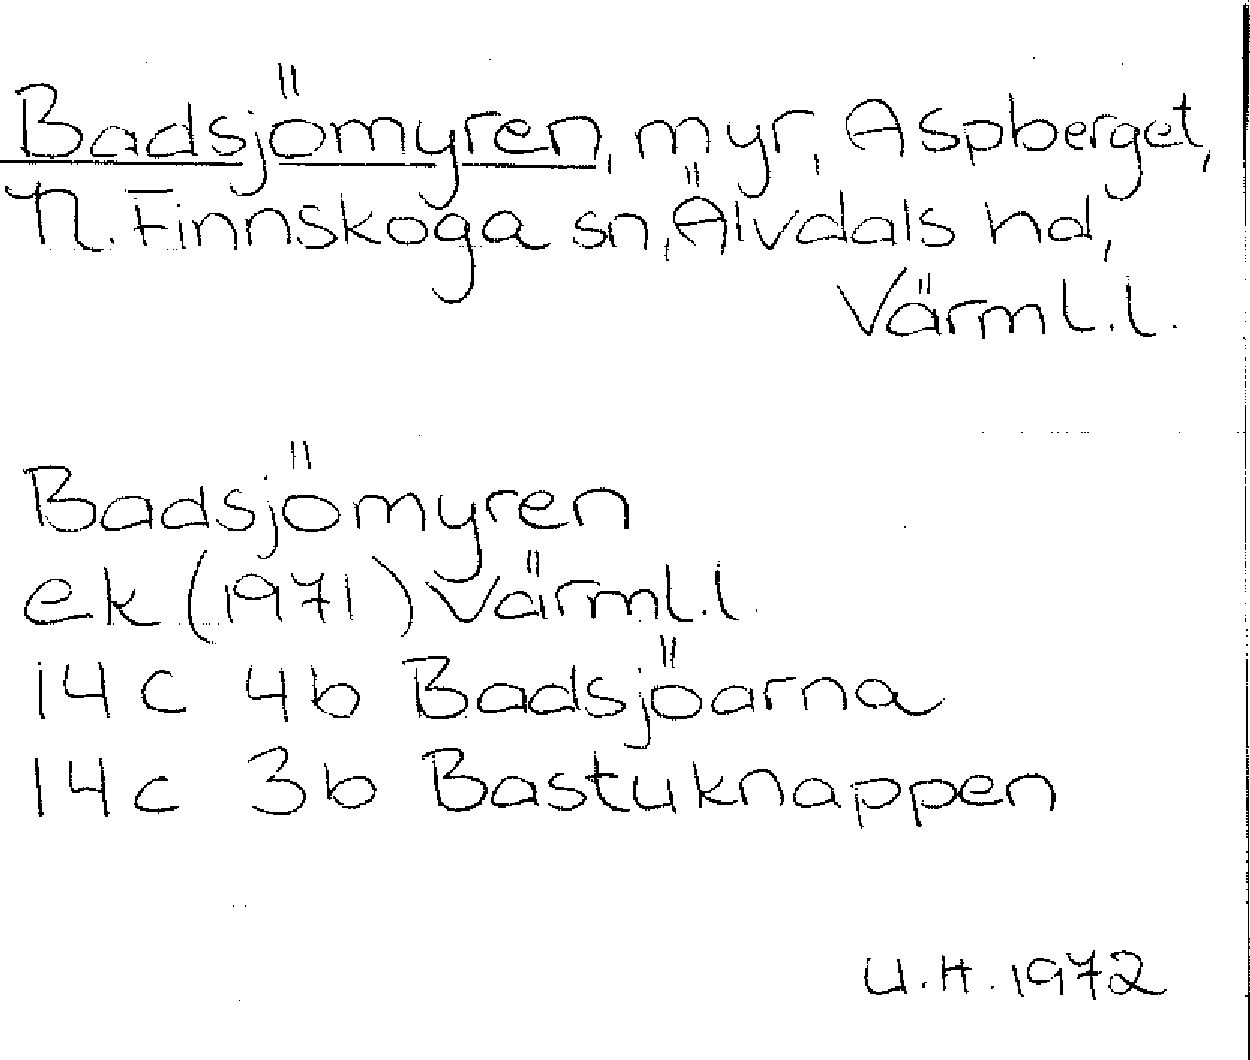 Badsjömyren, myr, Aspberget,
N. Finnskoga sn, Älvdals hd,
Värml.l.
Badsjömyren
ek (1971) Värml.l.
14c 4b Badsjöarna
14c 3b Bastuknappen
U.H. 1972